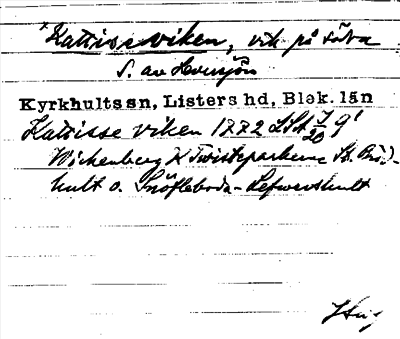 *Kattisseviken, vik på södra
S. av Hovsjön
Kyrkhults sn, Listers hd, Blek. län
Kattisse viken 1772 LSA 7/20 9'
Wickenberg K Twisteparkerne St. Brö-
hult o. Snöfleboda-Lefwershult